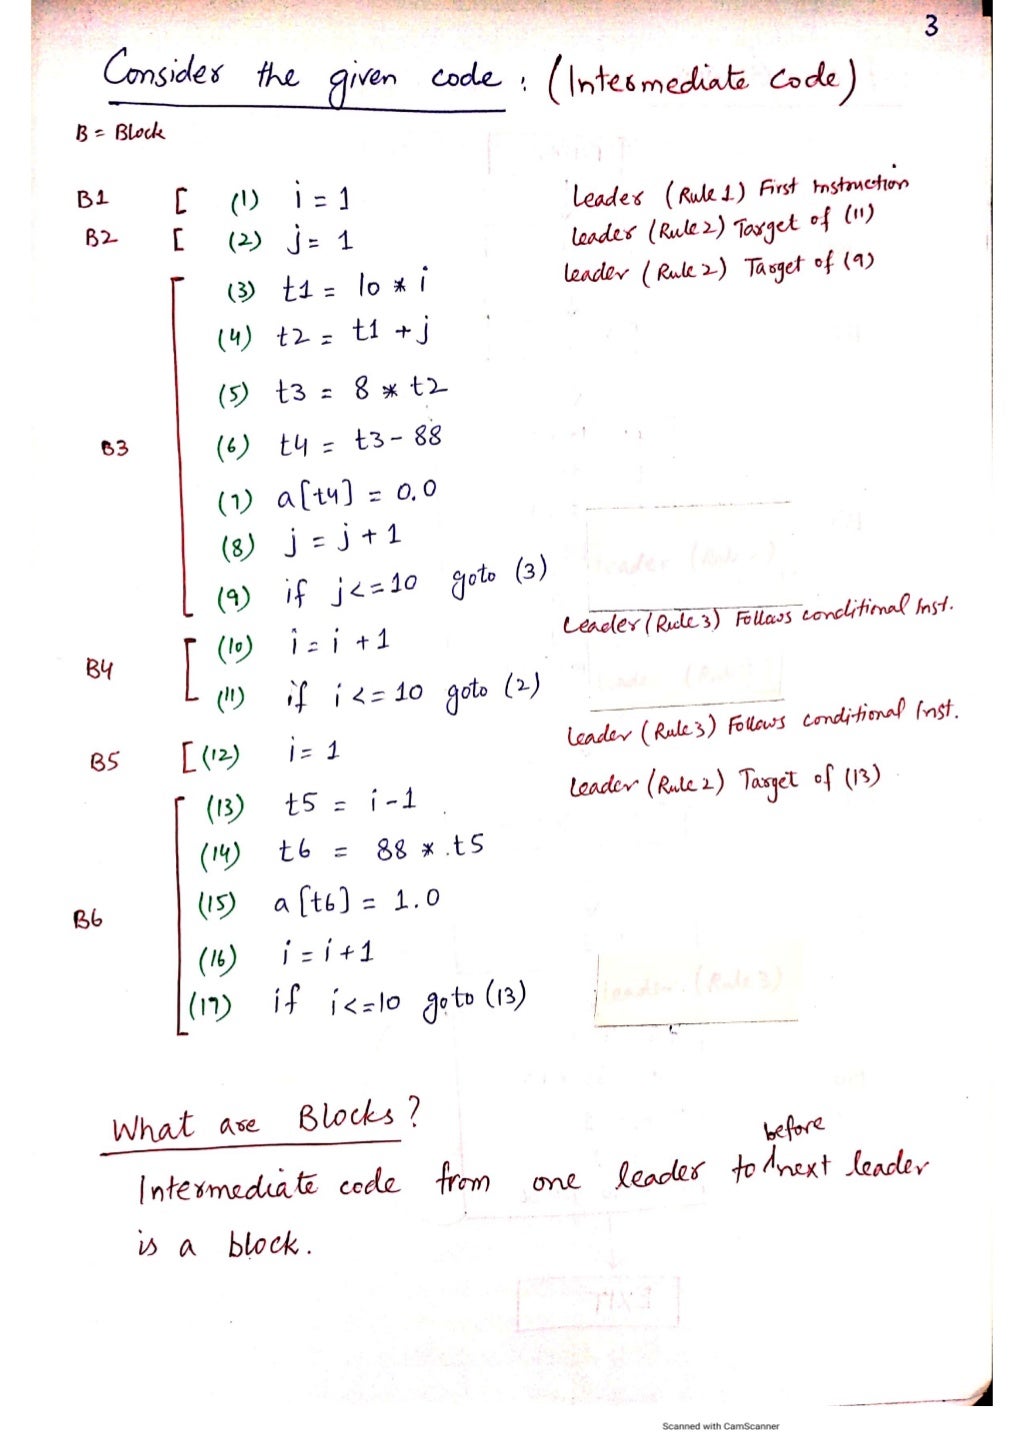 3
Consider the given code : (Intermediate code)
B = Block
B1 [ (1) i = 1 Leader (Rule 1) First Instruction
B2 [ (2) j = 1 leader (Rule 2) Target of (11)
(3) t1 = 10 * i leader (Rule 2) Target of (9)
(4) t2 = t1 + j
(5) t3 = 8 * t2
B3 (6) t4 = t3 - 88
(7) a[t4] = 0.0
(8) j = j + 1
(9) if j <= 10 goto (3)
(10) i = i + 1 Leader (Rule 3) Follows conditional Inst.
B4
(11) if i <= 10 goto (2)
B5 [ (12) i = 1 leader (Rule 3) Follows conditional Inst.
(13) t5 = i - 1 leader (Rule 2) Target of (13)
(14) t6 = 88 * t5
B6 (15) a[t6] = 1.0
(16) i = i + 1
(17) if i <= 10 goto (13)
What are Blocks?
Intermediate code from one leader to before next leader
is a block.
EXIT
Scanned with CamScanner